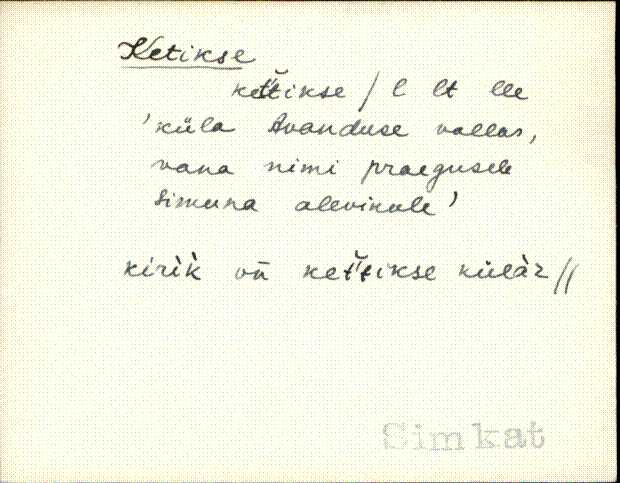 Ketikse
ket'tikse / l lt lle
'küla Avanduse vallas,
vana nimi praegusele
Simuna alevikule'
kirìk on ket'tikse külàz //
Simkat